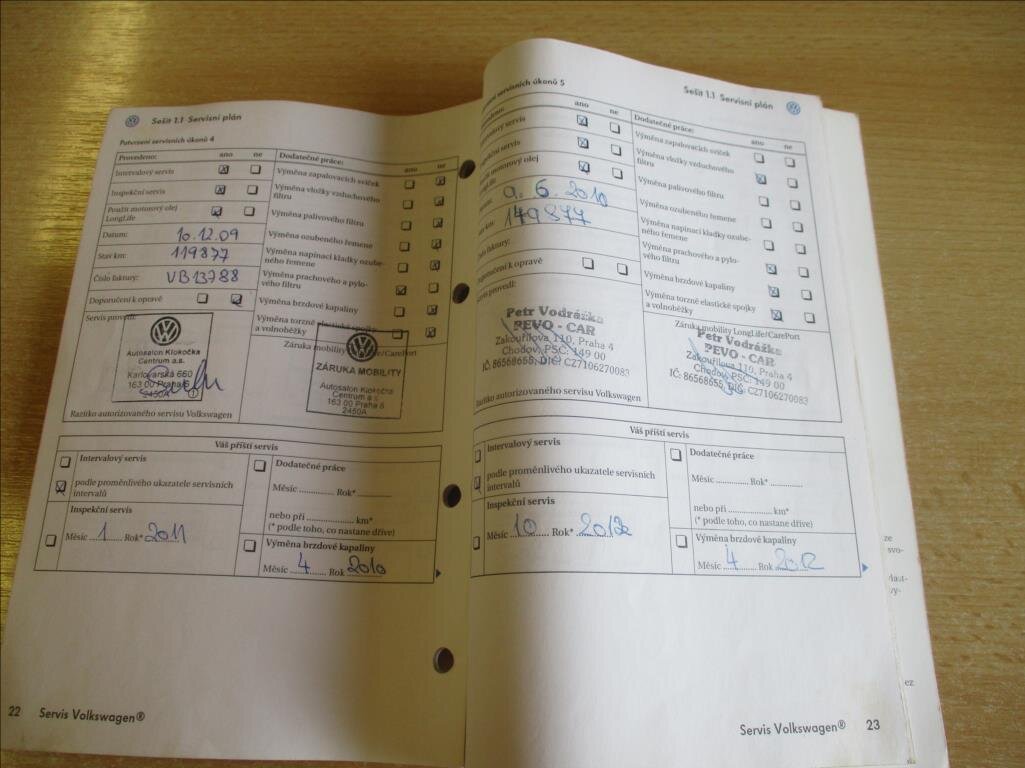 Sešit 1.1 Servisní plán
Potvrzení servisních úkonů 4
Provedeno: ano ne
Intervalový servis
Inspekční servis
Použit motorový olej
LongLife
Datum: 10.12.09
Stav km: 119877
Číslo faktury: VB13788
Doporučení k opravě
Servis provedl:
Autosalon Klokočka
Centrum a.s.
Karlovarská 660
163 00 Praha 6
2450A
Razítko autorizovaného servisu Volkswagen
Dodatečné práce: ano ne
Výměna zapalovacích svíček
Výměna vložky vzduchového
filtru
Výměna palivového filtru
Výměna ozubeného řemene
Výměna napínací kladky ozube-
ného řemene
Výměna prachového a pylo-
vého filtru
Výměna brzdové kapaliny
Výměna torzně elastické spojky
a volnoběžky
Záruka mobility /CarePort
ZÁRUKA MOBILITY
Autosalon Klokočka
Centrum a.s.
163 00 Praha 6
2450A
Váš příští servis
Intervalový servis
podle proměnlivého ukazatele servisních
intervalů
Inspekční servis
Měsíc 1 Rok* 2011
Dodatečné práce
Měsíc .............. Rok* ............
nebo při ................ km*
(* podle toho, co nastane dříve)
Výměna brzdové kapaliny
Měsíc 4 Rok 2010
22 Servis Volkswagen®
Sešit 1.1 Servisní plán
servisních úkonů 5
ano ne
servis
servis
motorový olej
9. 6. 2010
km: 149877
faktury:
k opravě
provedl:
Petr Vodrážka
PEVO - CAR
Zakouřilova 110, Praha 4
Chodov, PSČ: 149 00
IČ: 86568655, DIČ: CZ7106270083
Razítko autorizovaného servisu Volkswagen
Dodatečné práce: ano ne
Výměna zapalovacích svíček
Výměna vložky vzduchového
filtru
Výměna palivového filtru
Výměna ozubeného řemene
Výměna napínací kladky ozube-
ného řemene
Výměna prachového a pylo-
vého filtru
Výměna brzdové kapaliny
Výměna torzně elastické spojky
a volnoběžky
Záruka mobility LongLife/CarePort
Petr Vodrážka
PEVO - CAR
Zakouřilova 110, Praha 4
Chodov, PSČ: 149 00
IČ: 86568655, DIČ: CZ7106270083
Váš příští servis
Intervalový servis
podle proměnlivého ukazatele servisních
intervalů
Inspekční servis
Měsíc 10 Rok* 2012
Dodatečné práce
Měsíc .............. Rok* ............
nebo při ................ km*
(* podle toho, co nastane dříve)
Výměna brzdové kapaliny
Měsíc 4 Rok 2012
Servis Volkswagen® 23